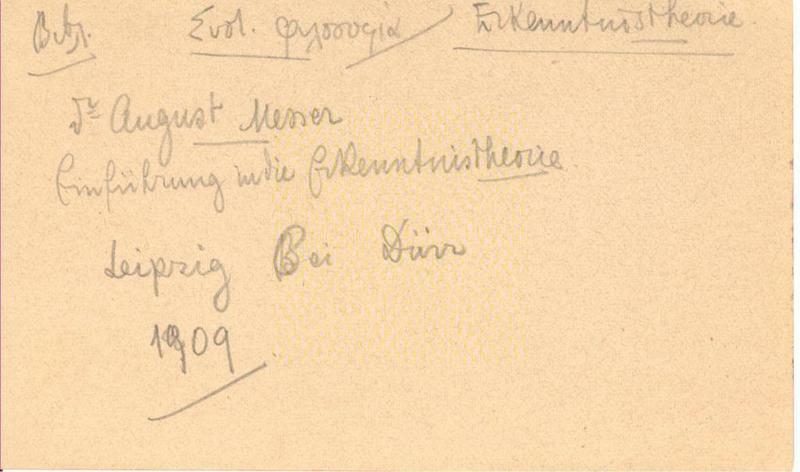 Βιβλ. Συστ. φιλοσοφία Erkenntnistheorie.
Dr August Messer
Einführung in die Erkenntnistheorie.
Leipzig Bei Dürr
1909